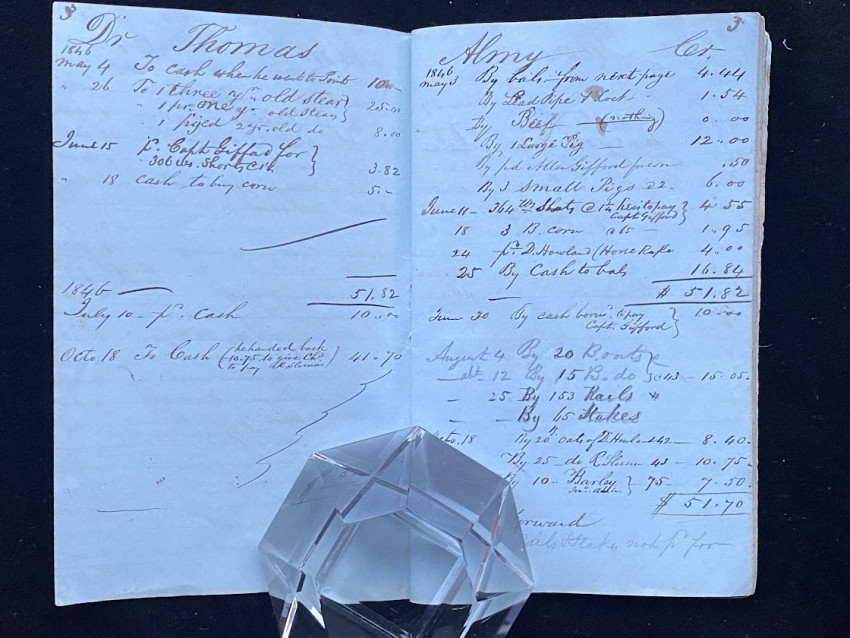 3
Dr Thomas
1846
May 4 To cash when he went to 10.00
" 26 To 1 three yr old Stear
" 1 pr. one yr. old Stear } 25.00
" 1 2 yr. old do 8.00
June 15 pr. Capt. Giffad for
306 lbs. Shorts } 3.82
" 18 cash to buy corn 5.-
51.82
1846
July 10 - pr. Cash 10.00
Octo. 18 To Cash (he handed back
10.75 to give Chs
to pay ) 41.70
3
Almy Cr.
1846
May 3 By bals from next page 4.44
By Lead Pipe & Cock 1.54
By Beef - (nothing) 0.00
By 1 Large Pig - 12.00
By pd Allen Gifford for corn .50
By 3 Small Pigs @2 - 6.00
June 11 - 364 lbs Shots @ 1¼ he is to pay
Capt. Gifford } 4.55
18 3 B. corn @ 65 - 1.95
24 pr. D. Howland (Horse Rake 4.00
25 By Cash to bals 16.84
$ 51.82
June 30 By cash to pay
Capt. Gifford } 10.00
August 4 By 20 B oats
12 By 15 B. do } @ 43 - 15.05.
- 25 By 153 Rails "
- - By 65 Stakes
Octo. 18 By 20 " oats of D. 42 - 8.40.
By 25 - do R. 43 - 10.75
By 10 - Barley } 75 7.50
$ 51.70
forward
not pr for